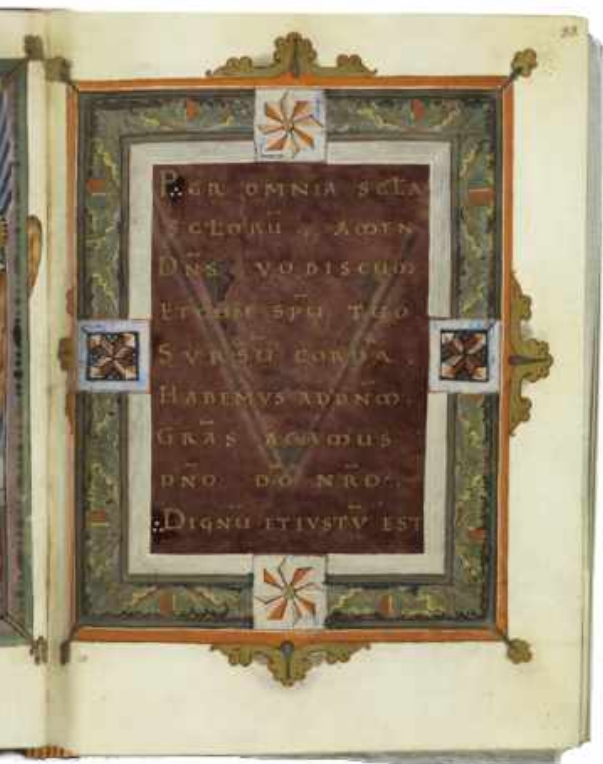 PER OMNIA SCLA
SCLORŪ . AMEN
DN̄S VOBISCUM
ET CUM SPŪ TUO
SVRSŪ CORDA .
HABEMVS ADDN̄M .
GRĀS AGAMUS
DN̄O D̄O NR̄O .
DIGNŪ ETIVSTŪ EST